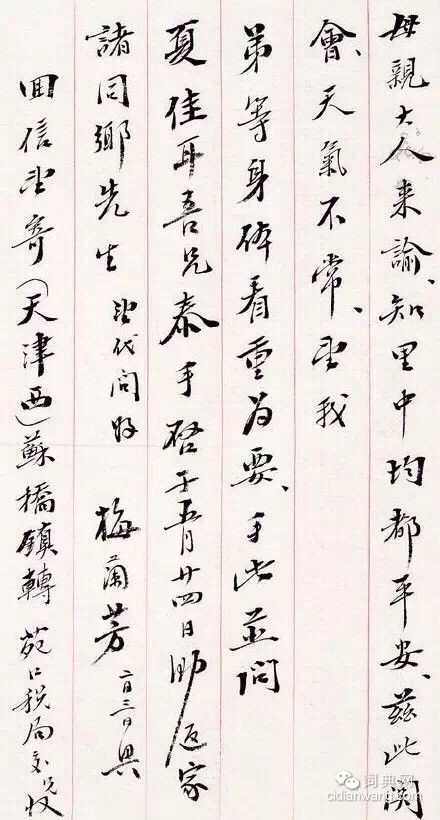 母親大人来諭、知里中均都平安、茲此関
會、天氣不常、望我
弟等身体看重為要、手此並問
夏佳耳吾兄泰手啓壬五月廿四日助返家
諸同鄉先生 望代問好 梅蘭芳
回信望寄（天津西）蘇橋鎮轉苑口税局交兄收
词典网
cidianwang.com